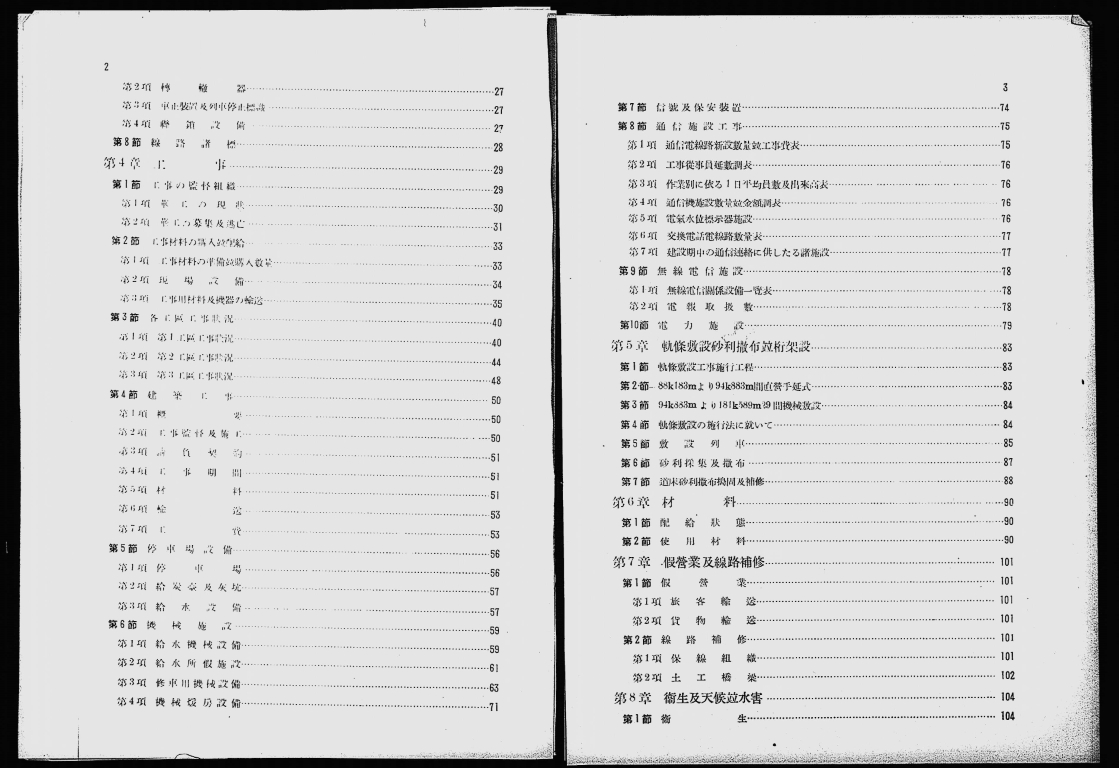 2
第2項 轉轍器 27
第3項 車止裝置及列車停止標識 27
第4項 聯鎖設備 27
第8節 線路諸標 28
第4章 工事 29
第1節 工事の監督組織 29
第1項 華工の現狀 30
第2項 華工の募集及逃亡 31
第2節 工事材料の購入竝配給 33
第1項 工事材料の準備竝購入數量 33
第2項 現場設備 34
第3項 工事用材料及機器の輸送 35
第3節 各工區工事狀況 40
第1項 第1工區工事狀況 40
第2項 第2工區工事狀況 44
第3項 第3工區工事狀況 48
第4節 建築工事 50
第1項 概要 50
第2項 工事監督及施工 50
第3項 請負契約 51
第4項 工事期間 51
第5項 材料 51
第6項 輸送 53
第7項 工費 53
第5節 停車場設備 56
第1項 停車場 56
第2項 給炭臺及灰坑 57
第3項 給水設備 57
第6節 機械施設 59
第1項 給水機械設備 59
第2項 給水所假施設 61
第3項 修車用機械設備 63
第4項 機械煖房設備 71
3
第7節 信號及保安裝置 74
第8節 通信施設工事 75
第1項 通信電線路新設數量竝工事費表 75
第2項 工事從事員延數調表 76
第3項 作業別に依る1日平均員數及出來高表 76
第4項 通信機施設數量竝金額調表 76
第5項 電氣水位標示器施設 76
第6項 交換電話電線路數量表 77
第7項 建設期中の通信連絡に供したる諸施設 77
第9節 無線電信施設 78
第1項 無線電信關係設備一覽表 78
第2項 電報取扱數 78
第10節 電力施設 79
第5章 軌條敷設砂利撒布竝桁架設 83
第1節 軌條敷設工事施行工程 83
第2節 88k183mより94k883m間直營手延式 83
第3節 94k883mより181k589m39間機械敷設 84
第4節 軌條敷設の施行法に就いて 84
第5節 敷設列車 85
第6節 砂利採集及撒布 87
第7節 道床砂利撒布搗固及補修 88
第6章 材料 90
第1節 配給狀態 90
第2節 使用材料 90
第7章 假營業及線路補修 101
第1節 假營業 101
第1項 旅客輸送 101
第2項 貨物輸送 101
第2節 線路補修 101
第1項 保線組織 101
第2項 土工橋梁 102
第8章 衞生及天候竝水害 104
第1節 衞生 104